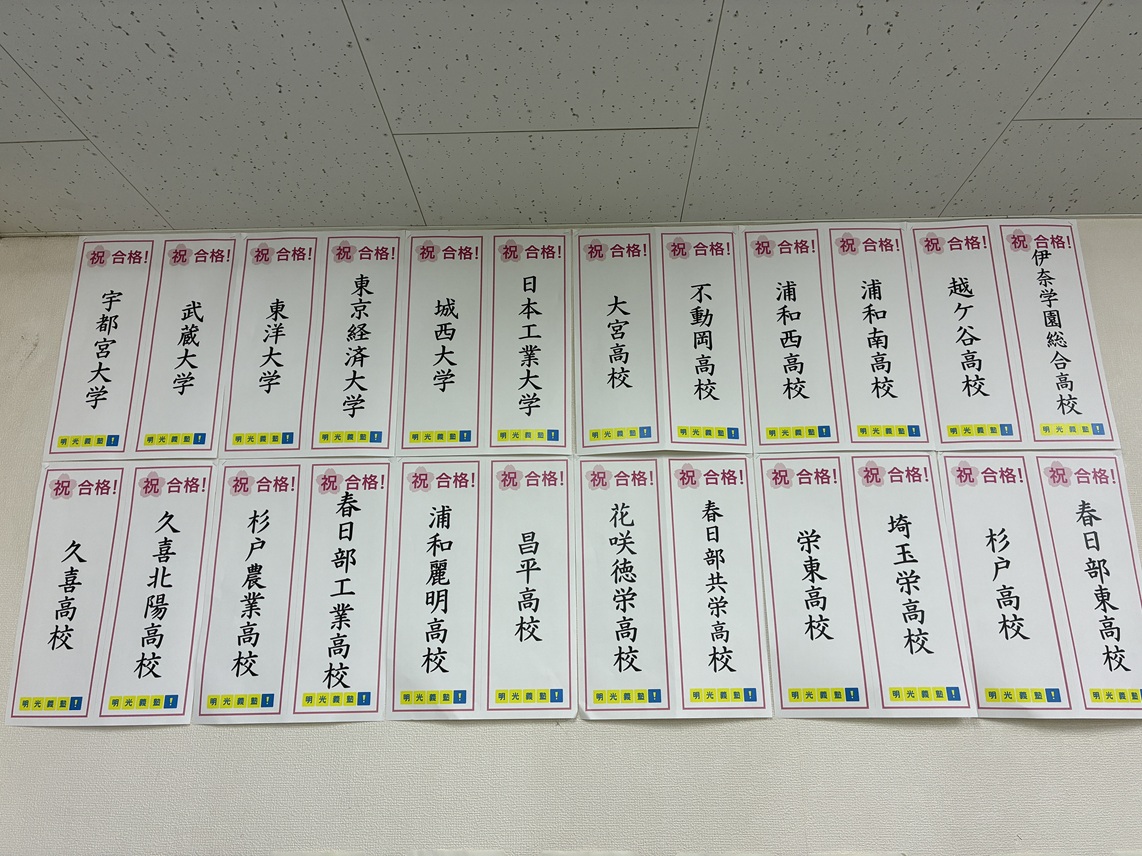 祝 合格!
宇都宮大学
明光義塾!
祝 合格!
武蔵大学
明光義塾!
祝 合格!
東洋大学
明光義塾!
祝 合格!
東京経済大学
明光義塾!
祝 合格!
城西大学
明光義塾!
祝 合格!
日本工業大学
明光義塾!
祝 合格!
大宮高校
明光義塾!
祝 合格!
不動岡高校
明光義塾!
祝 合格!
浦和西高校
明光義塾!
祝 合格!
浦和南高校
明光義塾!
祝 合格!
越ケ谷高校
明光義塾!
祝 合格!
伊奈学園総合高校
明光義塾!
祝 合格!
久喜高校
明光義塾!
祝 合格!
久喜北陽高校
明光義塾!
祝 合格!
杉戸農業高校
明光義塾!
祝 合格!
春日部工業高校
明光義塾!
祝 合格!
浦和麗明高校
明光義塾!
祝 合格!
昌平高校
明光義塾!
祝 合格!
花咲徳栄高校
明光義塾!
祝 合格!
春日部共栄高校
明光義塾!
祝 合格!
栄東高校
明光義塾!
祝 合格!
埼玉栄高校
明光義塾!
祝 合格!
杉戸高校
明光義塾!
祝 合格!
春日部東高校
明光義塾